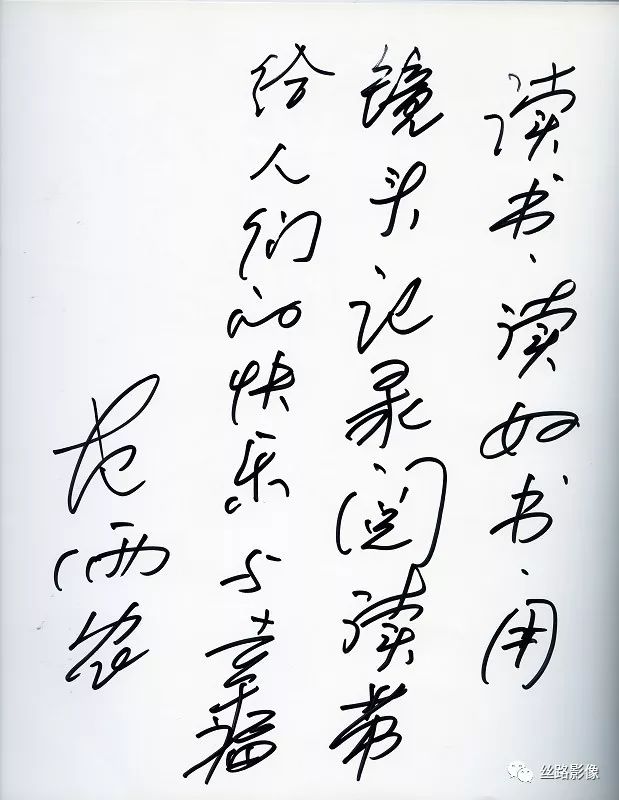 读书、读好书、用
镜头记录阅读带
给人们的快乐与幸福
丝路影像